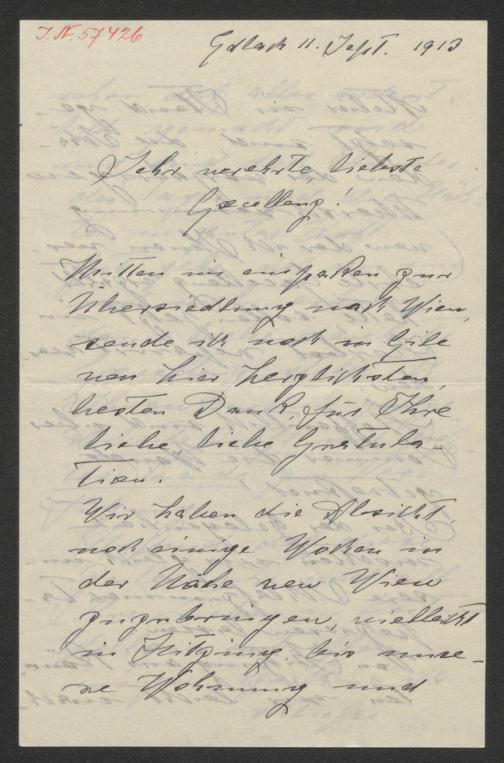 I.N. 57426
Edlach 11. Sept. 1913
Sehr verehrte, liebste
Excellenz!
Mitten im einpacken zur
Übersiedlung nach Wien,
sende ich noch in Eile
von hier herzlichsten,
besten Dank, für Ihre
liebe, liebe Gratula-
tion.
Wir haben die Absicht,
noch einige Wochen in
der Nähe von Wien
zuzubringen, vielleicht
in Hitzing, bis unse-
re Wohnung und